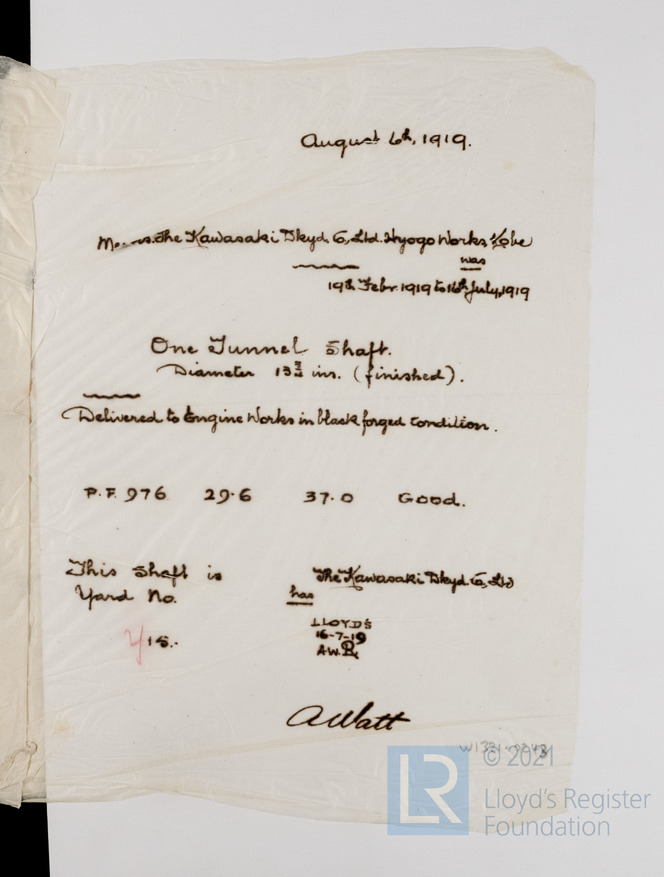 August 6th, 1919.
Messrs. The Kawasaki Dkyd Co., Ltd. Hyogo Works, Kobe
was
19th Febr 1919 to 16th July, 1919
One Tunnel Shaft.
Diameter 13 ins. (finished).
Delivered to Engine Works in black forged condition.
P.F. 976 29.6 37.0 Good.
This Shaft is The Kawasaki Dkyd. Co., Ltd
Yard No. has
LLOYD'S
16-7-19
A.W.
A Watt
© 2021
LR
Lloyd's Register
Foundation